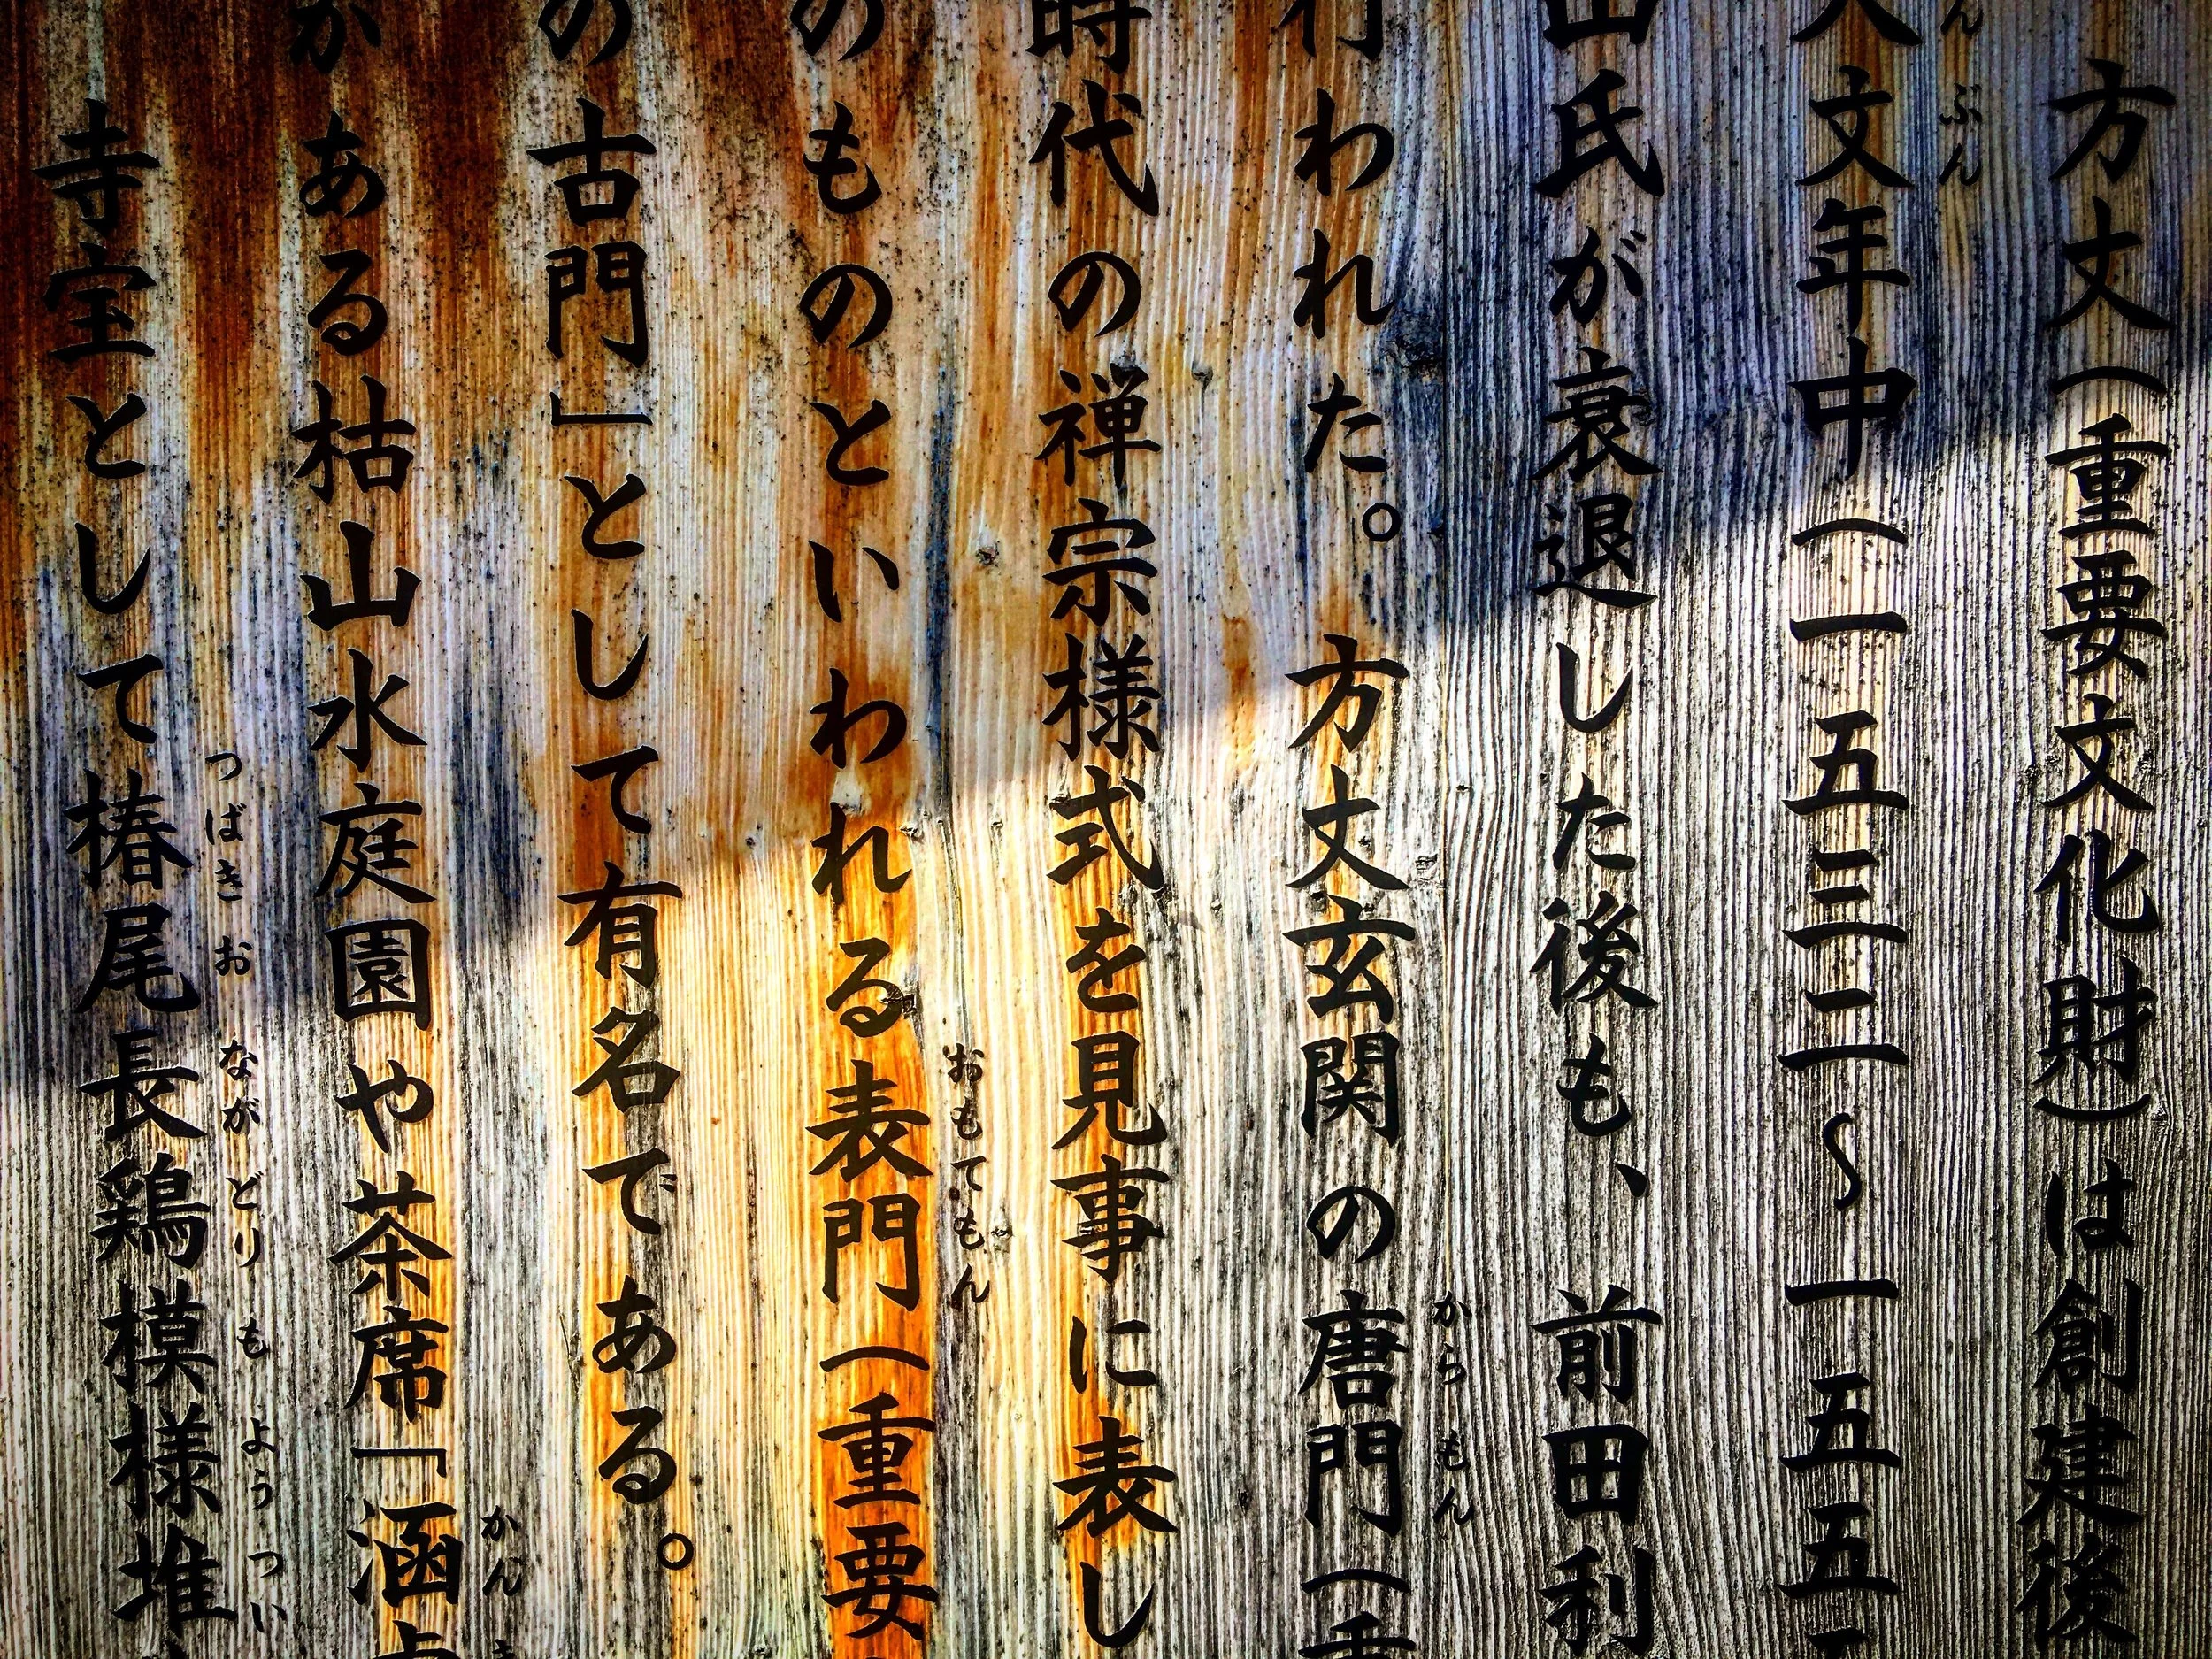 方丈(重要文化財)は創建後
文年中(一五三二〜一五五
山氏が衰退した後も、前田利
行われた。方丈玄関の唐門(重
時代の禅宗様式を見事に表し
のものといわれる表門(重要
の古門」として有名である。
ある枯山水庭園や茶席「涵
寺宝として椿尾長鶏模様堆